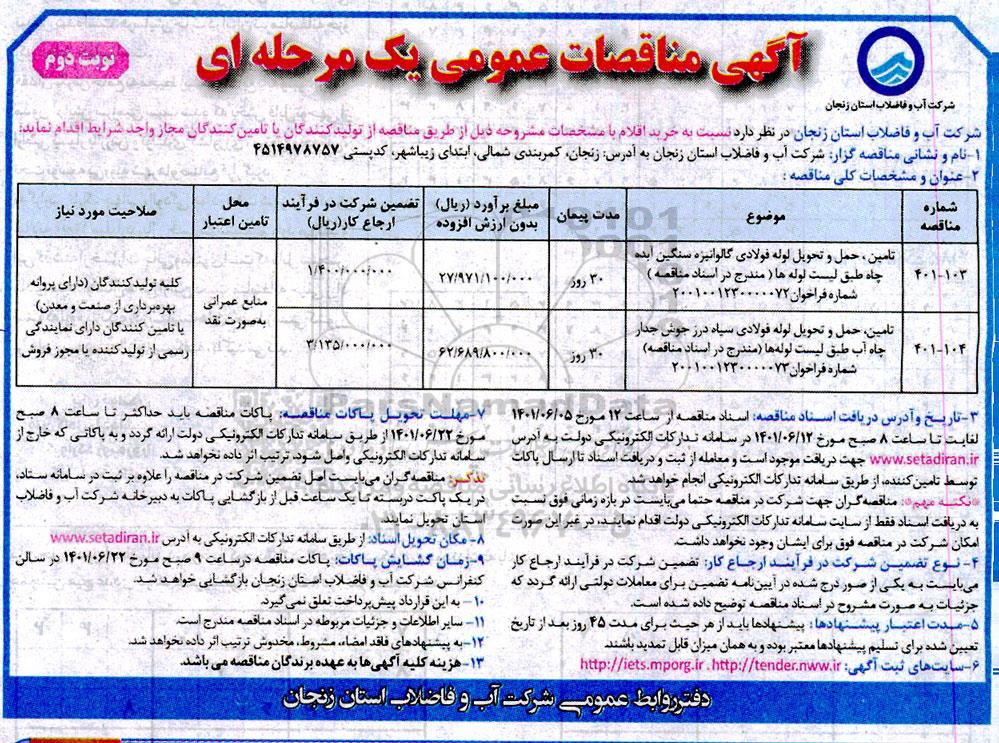 آگهی مناقصات عمومی یک مرحله ای
نوبت دوم
شرکت آب و فاضلاب استان زنجان
شرکت آب و فاضلاب استان زنجان در نظر دارد نسبت به خرید اقلام با مشخصات مشروحه ذیل از طریق مناقصه از تولیدکنندگان یا تامین‌کنندگان مجاز واجد شرایط اقدام نماید:
۱-نام و نشانی مناقصه گزار: شرکت آب و فاضلاب استان زنجان به آدرس: زنجان، کمربندی شمالی، ابتدای زیباشهر، کدپستی ۴۵۱۴۹۷۸۷۵۷
۲-عنوان و مشخصات کلی مناقصه :
شماره مناقصه
موضوع
مدت پیمان
مبلغ برآورد (ریال) بدون ارزش افزوده
تضمین شرکت در فرآیند ارجاع کار(ریال)
محل تامین اعتبار
صلاحیت مورد نیاز
۴۰۱-۱۰۳
تامین ، حمل و تحویل لوله فولادی گالوانیزه سنگین آبده
چاه طبق لیست لوله ها ( مندرج در اسناد مناقصه )
شماره فراخوان۲۰۰۱۰۰۱۲۳۰۰۰۰۰۷۲
۳۰ روز
۲۷/۹۷۱/۱۰۰/۰۰۰
۱/۴۰۰/۰۰۰/۰۰۰
۴۰۱-۱۰۴
تامین، حمل و تحویل لوله فولادی سیاه درز جوش جدار
چاه آب طبق لیست لوله‌ها (مندرج در اسناد مناقصه)
شماره فراخوان۲۰۰۱۰۰۱۲۳۰۰۰۰۰۷۳
۳۰ روز
۶۲/۶۸۹/۸۰۰/۰۰۰
۳/۱۳۵/۰۰۰/۰۰۰
منابع عمرانی
به‌صورت نقد
کلیه تولیدکنندگان (دارای پروانه
بهره‌برداری از صنعت و معدن)
یا تامین کنندگان دارای نمایندگی
رسمی از تولیدکننده یا مجوز فروش
۳-تاریخ و آدرس دریافت اسناد مناقصه: اسناد مناقصه از ساعت ۱۲ مورخ ۱۴۰۱/۰۶/۰۵
لغایت تا ساعت ۸ صبح مورخ ۱۴۰۱/۰۶/۱۲ در سامانه تدارکات الکترونیکی دولت به آدرس
www.setadiran.ir جهت دریافت موجود است و معامله از ثبت و دریافت اسناد تا ارسال پاکات
توسط تامین‌کننده، از طریق سامانه تدارکات الکترونیکی انجام خواهد شد.
*نکته مهم*: مناقصه‌گران جهت شرکت در مناقصه حتما می‌بایست در بازه زمانی فوق نسبت
به دریافت اسناد فقط از سایت سامانه تدارکات الکترونیکی دولت اقدام نمایند، در غیر این صورت
امکان شرکت در مناقصه فوق برای ایشان وجود نخواهد داشت.
۴- نوع تضمین شرکت در فرآیند ارجاع کار: تضمین شرکت در فرآیند ارجاع کار
می‌بایست به یکی از صور درج شده در آیین‌نامه تضمین برای معاملات دولتی ارائه گردد که
جزئیات به صورت مشروح در اسناد مناقصه توضیح داده شده است.
۵-مدت اعتبار پیشنهادها: پیشنهادها باید از هر حیث برای مدت ۴۵ روز بعد از تاریخ
تعیین شده برای تسلیم پیشنهادها معتبر بوده و به همان میزان قابل تمدید باشند.
۶-سایت‌های ثبت آگهی: http://iets.mporg.ir . http://tender.nww.ir
۷-مهلت تحویل پاکات مناقصه: پاکات مناقصه باید حداکثر تا ساعت ۸ صبح
مورخ ۱۴۰۱/۰۶/۲۲ از طریق سامانه تدارکات الکترونیکی دولت ارائه گردد و به پاکاتی که خارج از
سامانه تدارکات الکترونیکی واصل شود، ترتیب اثر داده نخواهد شد.
تذکر: مناقصه‌گران می‌بایست اصل تضمین شرکت در مناقصه را علاوه بر ثبت در سامانه ستاد،
در یک پاکت دربسته تا یک ساعت قبل از بازگشایی پاکات به دبیرخانه شرکت آب و فاضلاب
استان تحویل نمایند.
۸- مکان تحویل اسناد: از طریق سامانه تدارکات الکترونیکی به آدرس www.setadiran.ir
۹-زمان گشایش پاکات: پاکات مناقصه درساعت ۹ صبح مورخ ۱۴۰۱/۰۶/۲۲ در سالن
کنفرانس شرکت آب و فاضلاب استان زنجان بازگشایی خواهد شد.
۱۰- به این قرارداد پیش‌پرداخت تعلق نمی‌گیرد.
۱۱- سایر اطلاعات و جزئیات مربوطه در اسناد مناقصه مندرج است.
۱۲-به پیشنهادهای فاقد امضاء، مشروط، مخدوش ترتیب اثر داده نخواهد شد.
۱۳- هزینه کلیه آگهی‌ها به عهده برندگان مناقصه می باشد.
دفتر روابط عمومی شرکت آب و فاضلاب استان زنجان
ParsNamadData